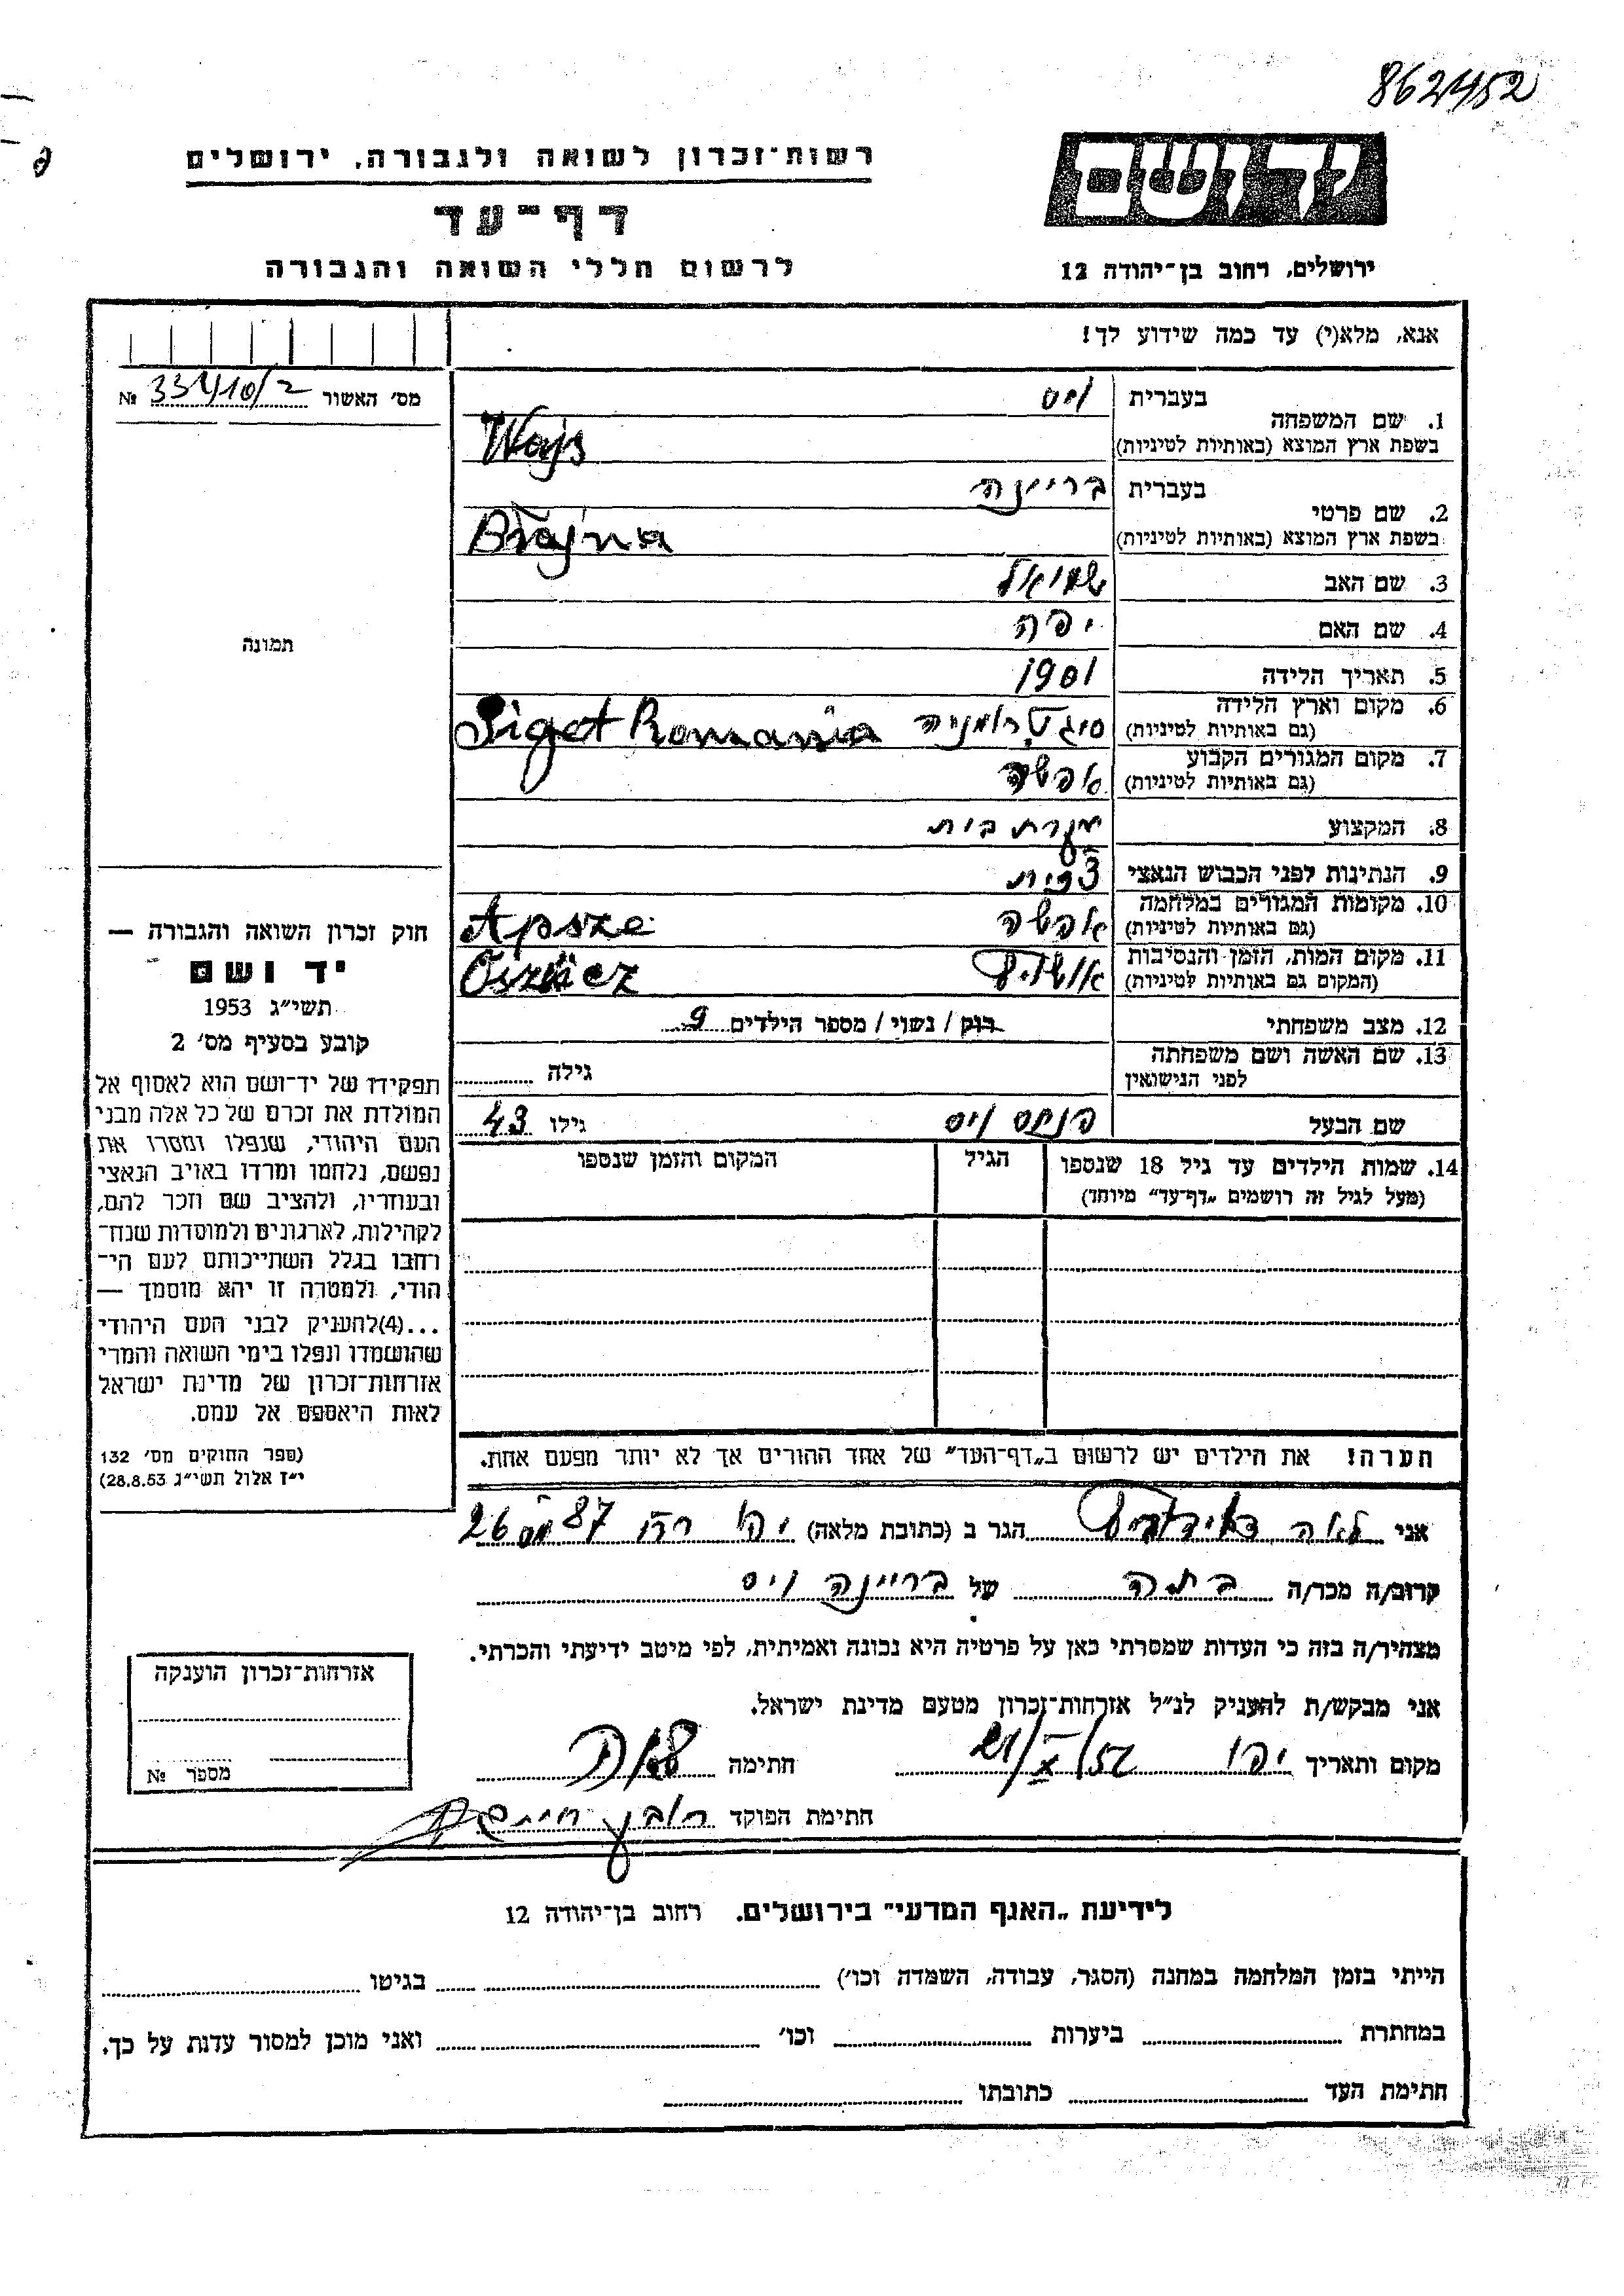 862452
רשות־זכרון לשואה ולגבורה, ירושלים
דף־עד
לרשום חללי השואה והגבורה
יד ושם
ירושלים, רחוב בן־יהודה 12
אנא, מלא(י) עד כמה שידוע לך!
מס׳ האשור № 331410/2
תמונה
1. שם המשפחה בעברית ויס
בשפת ארץ המוצא (באותיות לטיניות) Wajs
2. שם פרטי בעברית בריינה
בשפת ארץ המוצא (באותיות לטיניות) Brajna
3. שם האב שמואל
4. שם האם יפה
5. תאריך הלידה 1901
6. מקום וארץ הלידה (גם באותיות לטיניות) סיגט רומניה Siget Romania
7. מקום המגורים הקבוע (גם באותיות לטיניות) אפשה
8. המקצוע עקרת בית
9. הנתינות לפני הכבוש הנאצי צ׳כית
10. מקומות המגורים במלחמה (גם באותיות לטיניות) אפשה Apsze
11. מקום המות, הזמן והנסיבות (המקום גם באותיות לטיניות) אושויץ
12. מצב משפחתי רוק / נשוי / מספר הילדים 9
13. שם האשה ושם משפחתה לפני הנישואין גילה
שם הבעל פנחס ויס גילו 43
14. שמות הילדים עד גיל 18 שנספו הגיל המקום והזמן שנספו
(מעל לגיל זה רושמים „דף־עד״ מיוחד)
הערה! את הילדים יש לרשום ב„דף־העד״ של אחד ההורים אך לא יותר מפעם אחת.
חוק זכרון השואה והגבורה —
יד ושם
תשי״ג 1953
קובע בסעיף מס׳ 2
תפקידו של יד־ושם הוא לאסוף אל
המולדת את זכרם של כל אלה מבני
העם היהודי, שנפלו ומסרו את
נפשם, נלחמו ומרדו באויב הנאצי
ובעוזריו, ולהציב שם וזכר להם,
לקהילות, לארגונים ולמוסדות שנח־
רחבו בגלל השתייכותם לעם הי־
הודי, ולמטרה זו יהא מוסמך —
...(4)להעניק לבני העם היהודי
שהושמדו ונפלו בימי השואה והמרי
אזרחות־זכרון של מדינת ישראל
לאות היאספם אל עמם.
(ספר החוקים מס׳ 132
י״ז אלול תשי״ג 28.8.53)
אני לאה דוידוביץ הגר ב (כתובת מלאה) 87 26
קרוב/ה מכר/ה בתה של בריינה ויס
מצהיר/ה בזה כי העדות שמסרתי כאן על פרטיה היא נכונה ואמיתית, לפי מיטב ידיעתי והכרתי.
אני מבקש/ת להעניק לנ״ל אזרחות־זכרון מטעם מדינת ישראל.
מקום ותאריך יהו חתימה
חתימת הפוקד ראובן חיים
אזרחות־זכרון הוענקה
מספר №
לידיעת „האגף המדעי״ בירושלים. רחוב בן־יהודה 12
הייתי בזמן המלחמה במחנה (הסגר, עבודה, השמדה וכו׳) בגיטו
במחתרת ביערות וכו׳ ואני מוכן למסור עדות על כך.
חתימת העד כתובתו